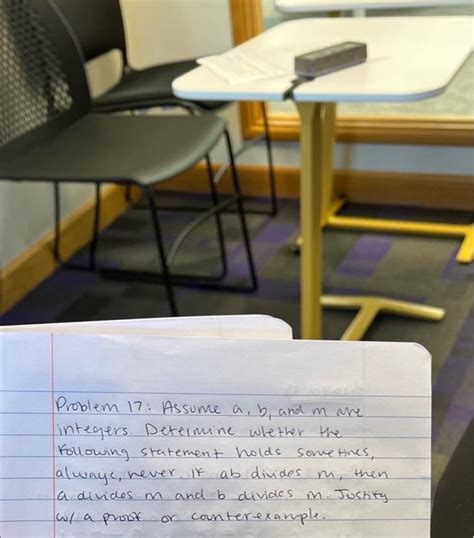 Problem 17: Assume a, b, and m are
integers. Determine whether the
following statement holds sometimes,
always, never. If ab divides m, then
a divides m and b divides m. Justify
w/ a proof or counterexample.